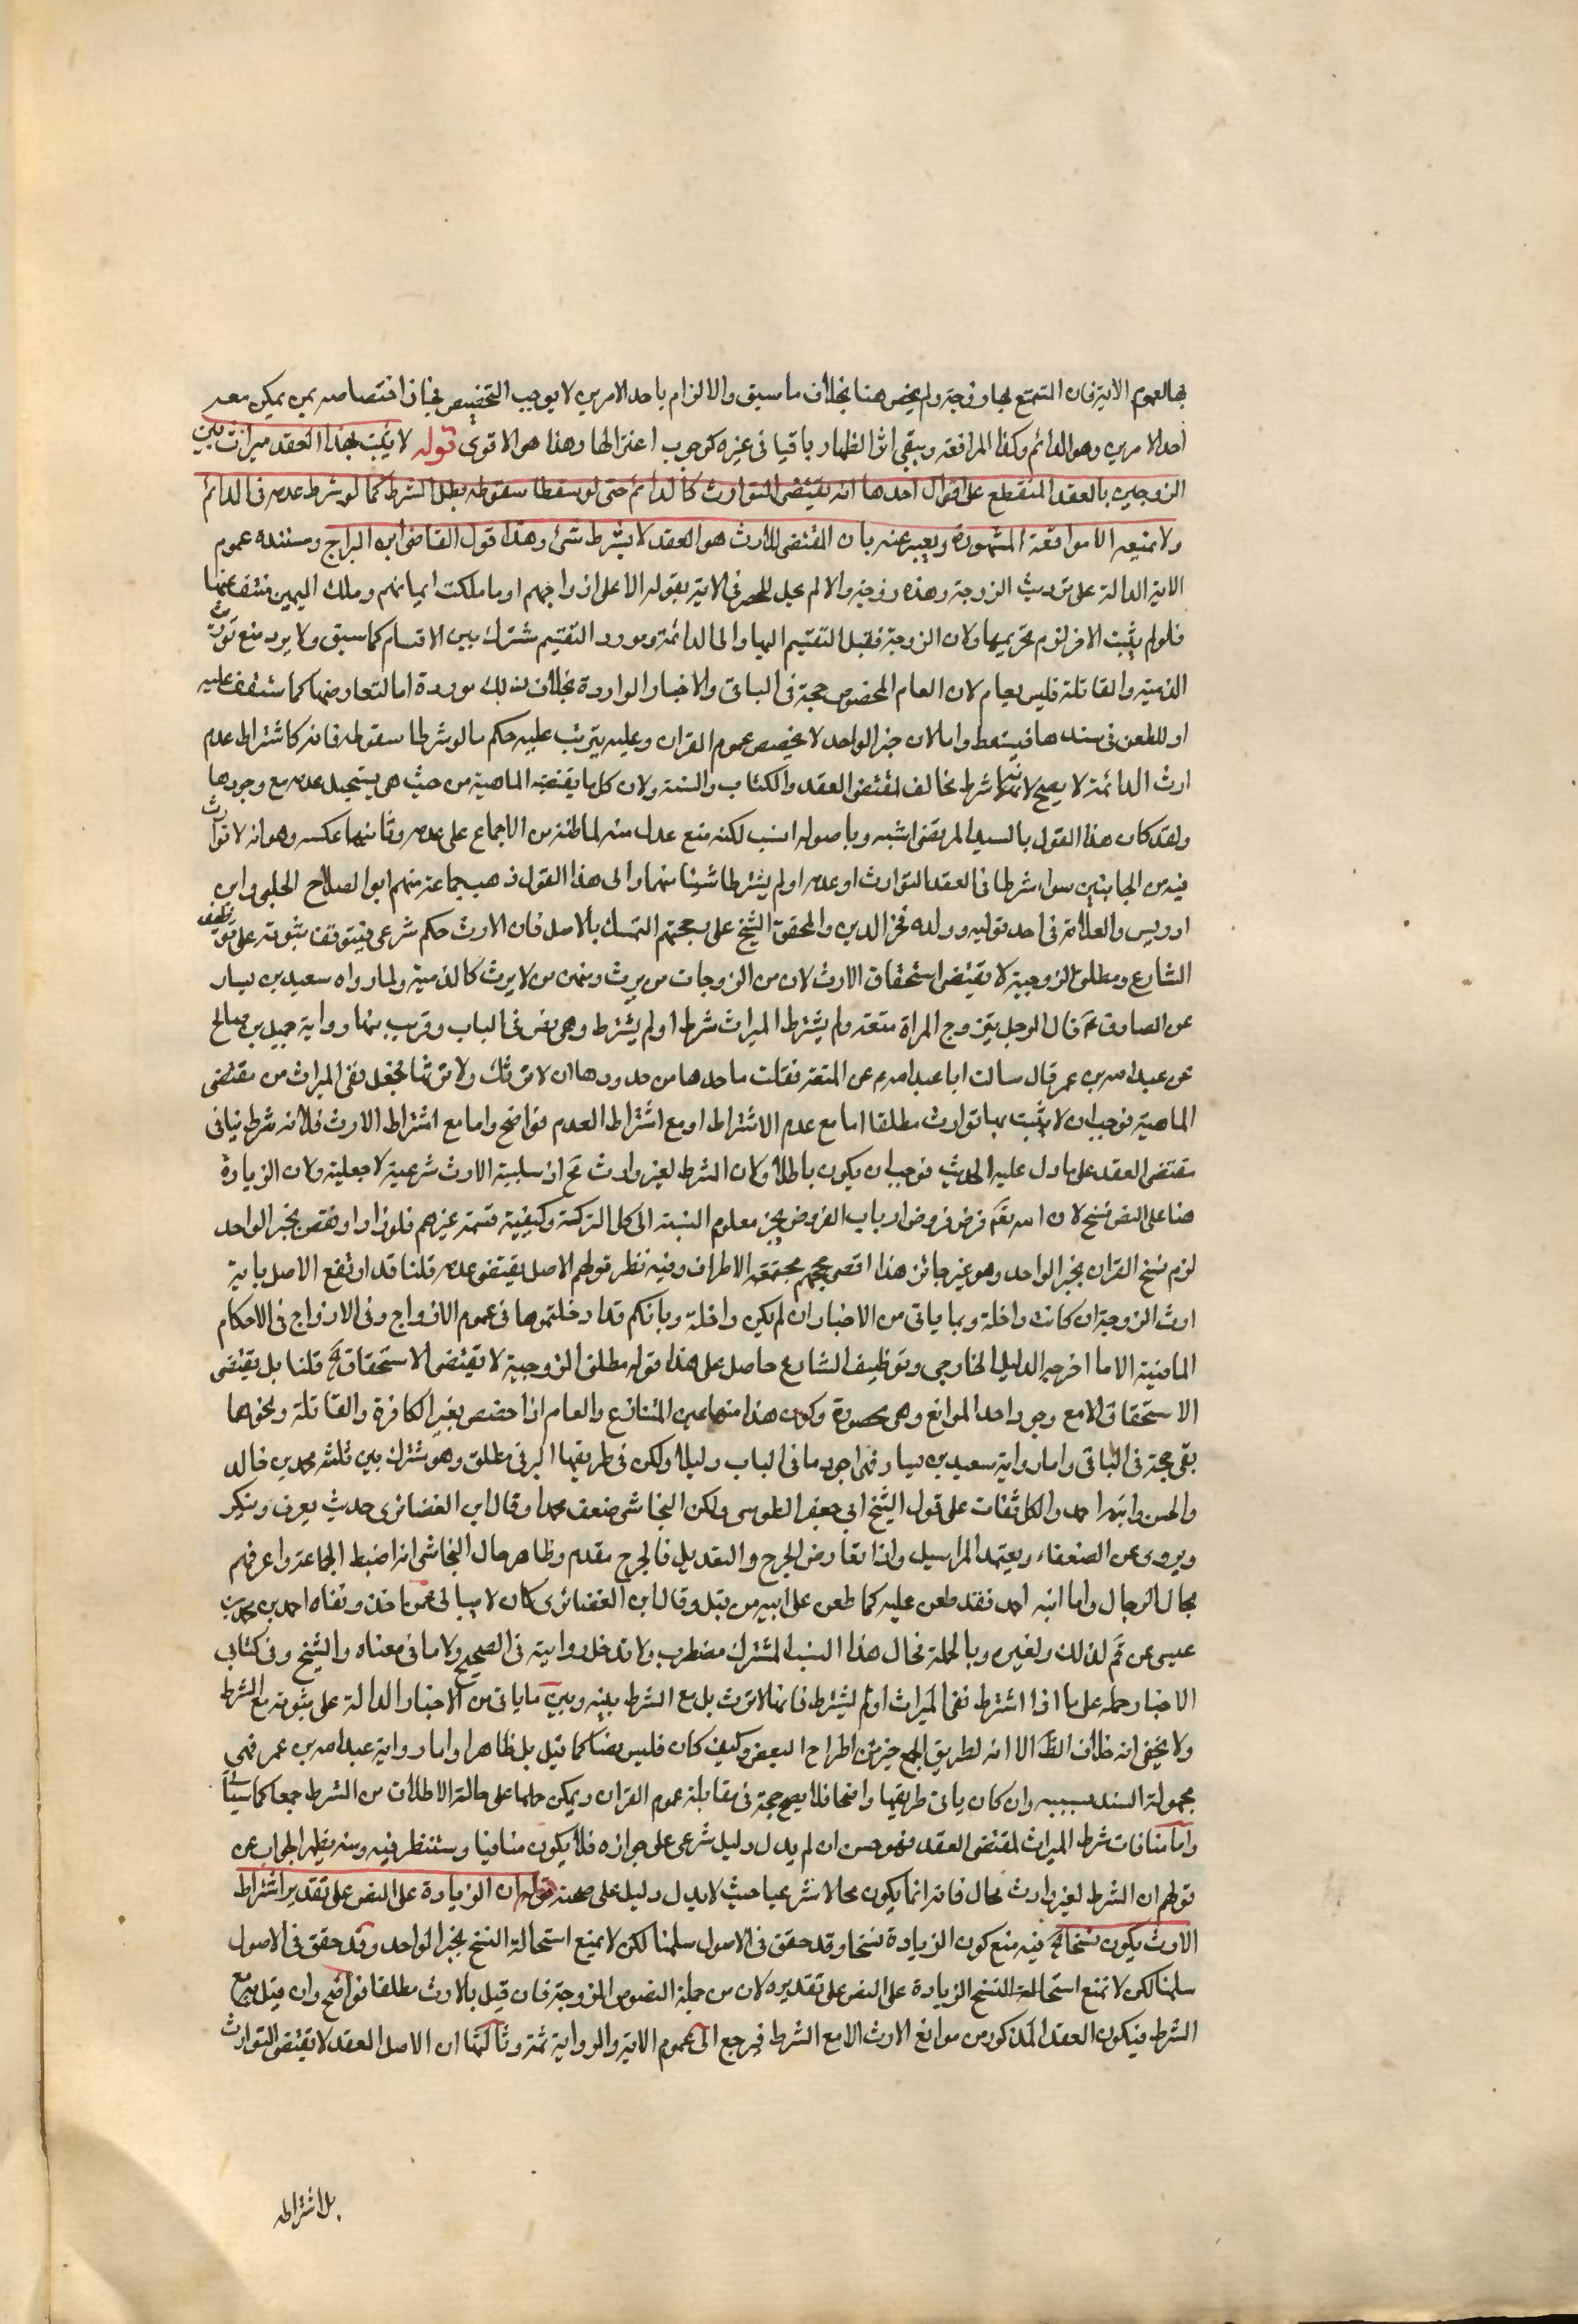 بها لعموم الاية فان المتمتع بها زوجة ولم يخص هنا بخلاف ما سبق والالزام باحد الامرين لا يوجب التخصيص فجاز اختصاصه بمن يمكن معه
احد الامرين وهو الدائم وكذا المرافعة ويبقى اثر الظهار باقيا في غيره كوجوب اعتزالها وهذا هو الاقوى قوله لا يثبت بهذا العقد ميراث بين
الزوجين بالعقد المنقطع على اقوال احدها انه يقتضى التوارث كالدائم حتى لو سقطا سقوطه بطل الشرط كما لو شرط عدمه فى الدائم
ولا منعه الا موافقة المشهور ويعبر عنه بان المقتضى للارث هو العقد لا بشرط شئ وهذا قول القاضى ابن البراج ومستنده عموم
الاية الدالة على توريث الزوجة وهذه زوجة والا لم تحل للحصر فى الاية بقوله الا على ازواجهم او ما ملكت ايمانهم وملك اليمين منتف عنها
فلو لم يثبت الاخر لزم تحريمها ولان الزوجة تقبل التقسيم اليها والى الدائمة ومورد التقسيم مشترك بين الاقسام كما سبق ولا يرد منع توريث
الذمية والقاتلة فليس بعام لان العام المخصوص حجة فى الباقى والاخبار الواردة بخلاف ذلك مردودة اما لتعارضها كما ستقف عليه
او للطعن فى سندها فيسقط واما لان خبر الواحد لا يخصص عموم القران وعليه يترتب عليه حكم ما لو شرطا سقوطه فانه كاشتراط عدم
ارث الدائمة لا يصح لانه شرط يخالف لمقتضى العقد والكتاب والسنة ولان كل ما يقتضيه الماهية من حيث هى يستحيل عدمه مع وجودها
ولقد كان هذا القول بالسيد المرتضى اشبه وباصوله انسب لكنه منع عدل منه لما ظنه من الاجماع على عدمه وثانيها عكسه وهو انه لا توارث
فيه من الجانبين سواء شرطا فى العقد التوارث او عدمه او لم يشترطا شيئا منهما والى هذا القول ذهب جماعة منهم ابو الصلاح الحلبى وابن
ادريس والعلامة فى احد قوليه وولده فخر الدين والمحقق الشيخ على وحجتهم التمسك بالاصل فان الارث حكم شرعى فيتوقف ثبوته على توظيف
الشارع ومطلق الزوجية لا تقتضى استحقاق الارث لان من الزوجات من يرث ومنهن من لا يرث كالذمية ولما رواه سعيد بن يسار
عن الصادق ع قال الرجل يتزوج المراة متعة ولم يشترط الميراث شرط او لم يشترط وهى نص فى الباب وقريب منها رواية جميل بن صالح
عن عبد الله بن عمر قال سالت ابا عبد الله ع عن المتعة فقلت ما حدها من حدودها ان لا ترثك ولا ترثها فجعل نفى الميراث من مقتضى
الماهية فوجب ان لا يثبت بها توارث مطلقا اما مع عدم الاشتراط او مع اشتراط العدم فواضح واما مع اشتراط الارث فلانه شرط ينافى
مقتضى العقد على ما دل عليه الحديث فوجب ان يكون باطلا ولان الشرط لغير وارث مح اذ سببية الارث شرعية لا جعلية ولان الزيادة
هنا على النص نسخ لان الله تع فرض فروض ارباب الفروض بجزء معلوم النسبة الى كل التركة وكيفية قسمة غيرهم فلو زاد او نقص بخبر الواحد
لزم نسخ القران بخبر الواحد وهو غير جائز هذا اقصى حججهم مجتمعة الاطراف وفيه نظر قولهم الاصل يقتضى عدمه قلنا قد ارتفع الاصل باية
ارث الزوجة ان كانت داخلة وبما ياتى من الاخبار ان لم يكن داخلة وبانكم قد ادخلتموها فى عموم الازواج وفى الازواج فى الاحكام
الماضية الا ما اخرجه الدليل الخارجى وتوظيف الشارع حاصل على هذا قوله مطلق الزوجية لا يقتضى الاستحقاق الخ قلنا بل يقتضى
الاستحقاق الا مع وجود احد الموانع وهى محصورة وكون هذا منها عين المتنازع والعام اذا خصص بغير الكافرة والقاتلة ونحوها
بقى حجة فى الباقى واما رواية سعيد بن يسار فهى اجود ما فى الباب دليلا ولكن فى طريقها البرقى مطلق وهو مشترك بين ثلثة محمد بن خالد
والحسن وابنه احمد والكل ثقات على قول الشيخ ابى جعفر الطوسى ولكن النجاشى ضعف محمدا وقال ابن الغضائرى حديثه يعرف وينكر
ويروى عن الضعفاء ويعتمد المراسيل واذا تعارض الجرح والتعديل فالجرح مقدم وظاهر حال النجاشى انه اضبط الجماعة واعرفهم
بحال الرجال واما ابنه احمد فقد طعن عليه كما طعن على ابيه من قبل وقال ابن الغضائرى كان لا يبالى عمن اخذ ونفاه احمد بن محمد بن
عيسى عن قم لذلك ولغيره وبالجملة فحال هذا النسب المشترك مضطرب ولا تدخل روايته فى الصحيح ولا ما فى معناه والشيخ وفى كتابى
الاخبار حمله على ما اذا اشترط نفى الميراث او لم يشترط فانها لا ترث بل مع الشرط بينه وبين ما ياتى من الاخبار الدالة على ثبوته مع الشرط
ولا يخفى انه خلاف الظ الا انه لطريق الجمع خير من اطراح البعض وكيف كان فليس نصا كما قيل بل ظاهرا واما رواية عبد الله بن عمر فهى
مجهولة السند بسببه وان كان باقى طريقها واضحا فلا يصح حجة فى مقابلة عموم القران ويمكن حملها على حالة الاطلاق من الشرط جمعا كما سيأتى
واما منافات شرط الميراث لمقتضى العقد فهو حسن ان لم يدل دليل شرعى على جوازه فلا يكون منافيا وستنظر فيه ومنه يظهر الجواب عن
قولهم ان الشرط لغير وارث محال فانه انما يكون محالا شرعيا حيث لا يدل دليل على صحته قوله ان الزيادة على النص على تقدير اشتراط
الارث يكون نسخا الخ فيه منع كون الزيادة نسخا وقد حقق فى الاصول سلمنا لكن لا نمنع استحالة النسخ بخبر الواحد وقد حقق فى الاصول
سلمنا لكن لا نمنع استحالة النسخ الزيادة على النص على تقديره لان من جملة النصوص الزوجة فان قيل بالارث مطلقا فواضح وان قيل به مع
الشرط فيكون العقد المذكور من موانع الارث الا مع الشرط فيرجع الى عموم الاية والرواية ثمة وثالثها ان الاصل العقد لا يقتضى التوارث
بل اشتراطه